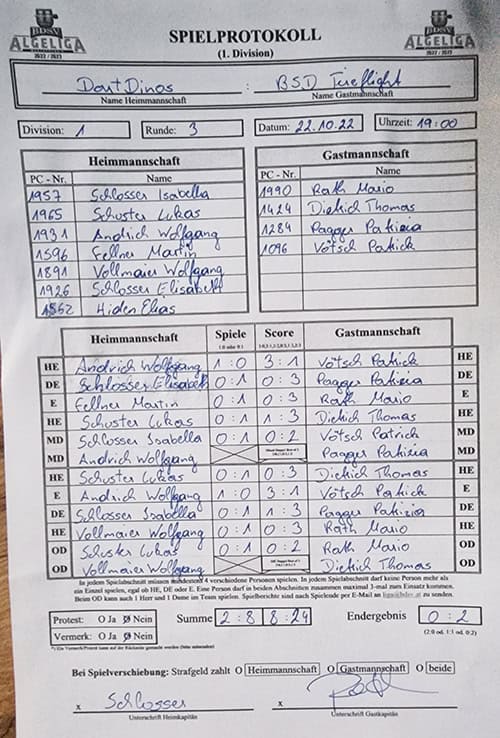 BDSV ALGELIGA 2022 / 2023
SPIELPROTOKOLL
(1. Division)
BDSV ALGELIGA 2022 / 2023
DartDinos : BSD Treeflight
Name Heimmannschaft Name Gastmannschaft
Division: 1 Runde: 3 Datum: 22.10.22 Uhrzeit: 19:00
Heimmannschaft Gastmannschaft
PC - Nr. Name PC - Nr. Name
1957 Schlosser Isabella 1990 Rath Mario
1965 Schuster Lukas 1424 Dietrich Thomas
1931 Andrich Wolfgang 1284 Pagger Patrizia
1596 Fellner Martin 1096 Vötsch Patrick
1891 Vollmaier Wolfgang
1926 Schlosser Elisabeth
1562 Hiden Elias
Heimmannschaft Spiele Score Gastmannschaft
1:0 oder 0:1
HE Andrich Wolfgang 1 : 0 3 : 1 Vötsch Patrick HE
DE Schlosser Elisabeth 0 : 1 0 : 3 Pagger Patrizia DE
E Fellner Martin 0 : 1 0 : 3 Rath Mario E
HE Schuster Lukas 0 : 1 1 : 3 Dietrich Thomas HE
MD Schlosser Isabella 0 : 1 0 : 2 Vötsch Patrick MD
MD Andrich Wolfgang Pagger Patrizia MD
HE Schuster Lukas 0 : 1 0 : 3 Dietrich Thomas HE
E Andrich Wolfgang 1 : 0 3 : 1 Vötsch Patrick E
DE Schlosser Isabella 0 : 1 1 : 3 Pagger Patrizia DE
HE Vollmaier Wolfgang 0 : 1 0 : 3 Rath Mario HE
OD Schuster Lukas 0 : 1 0 : 2 Rath Mario OD
OD Vollmaier Wolfgang Dietrich Thomas OD
In jedem Spielabschnitt müssen mindestens 4 verschiedene Personen spielen. In jedem Spielabschnitt darf keine Person mehr als
ein Einzel spielen, egal ob HE, DE oder E. Eine Person darf in beiden Abschnitten zusammen maximal 3-mal zum Einsatz kommen.
Beim OD kann auch 1 Herr und 1 Dame im Team spielen. Spielberichte sind nach Spielende per E-Mail an zu senden.
Protest: O Ja Ø Nein Summe 2 : 8 8 : 24 Endergebnis 0 : 2
Vermerk: O Ja Ø Nein (2:0 od. 1:1 od. 0:2)
*) Ein Vermerk/Protest kann auf der Rückseite gemacht werden (bitte unterzeichnen)
Bei Spielverschiebung: Strafgeld zahlt O Heimmannschaft O Gastmannschaft O beide
x Schlosser x
Unterschrift Heimkapitän Unterschrift Gastkapitän